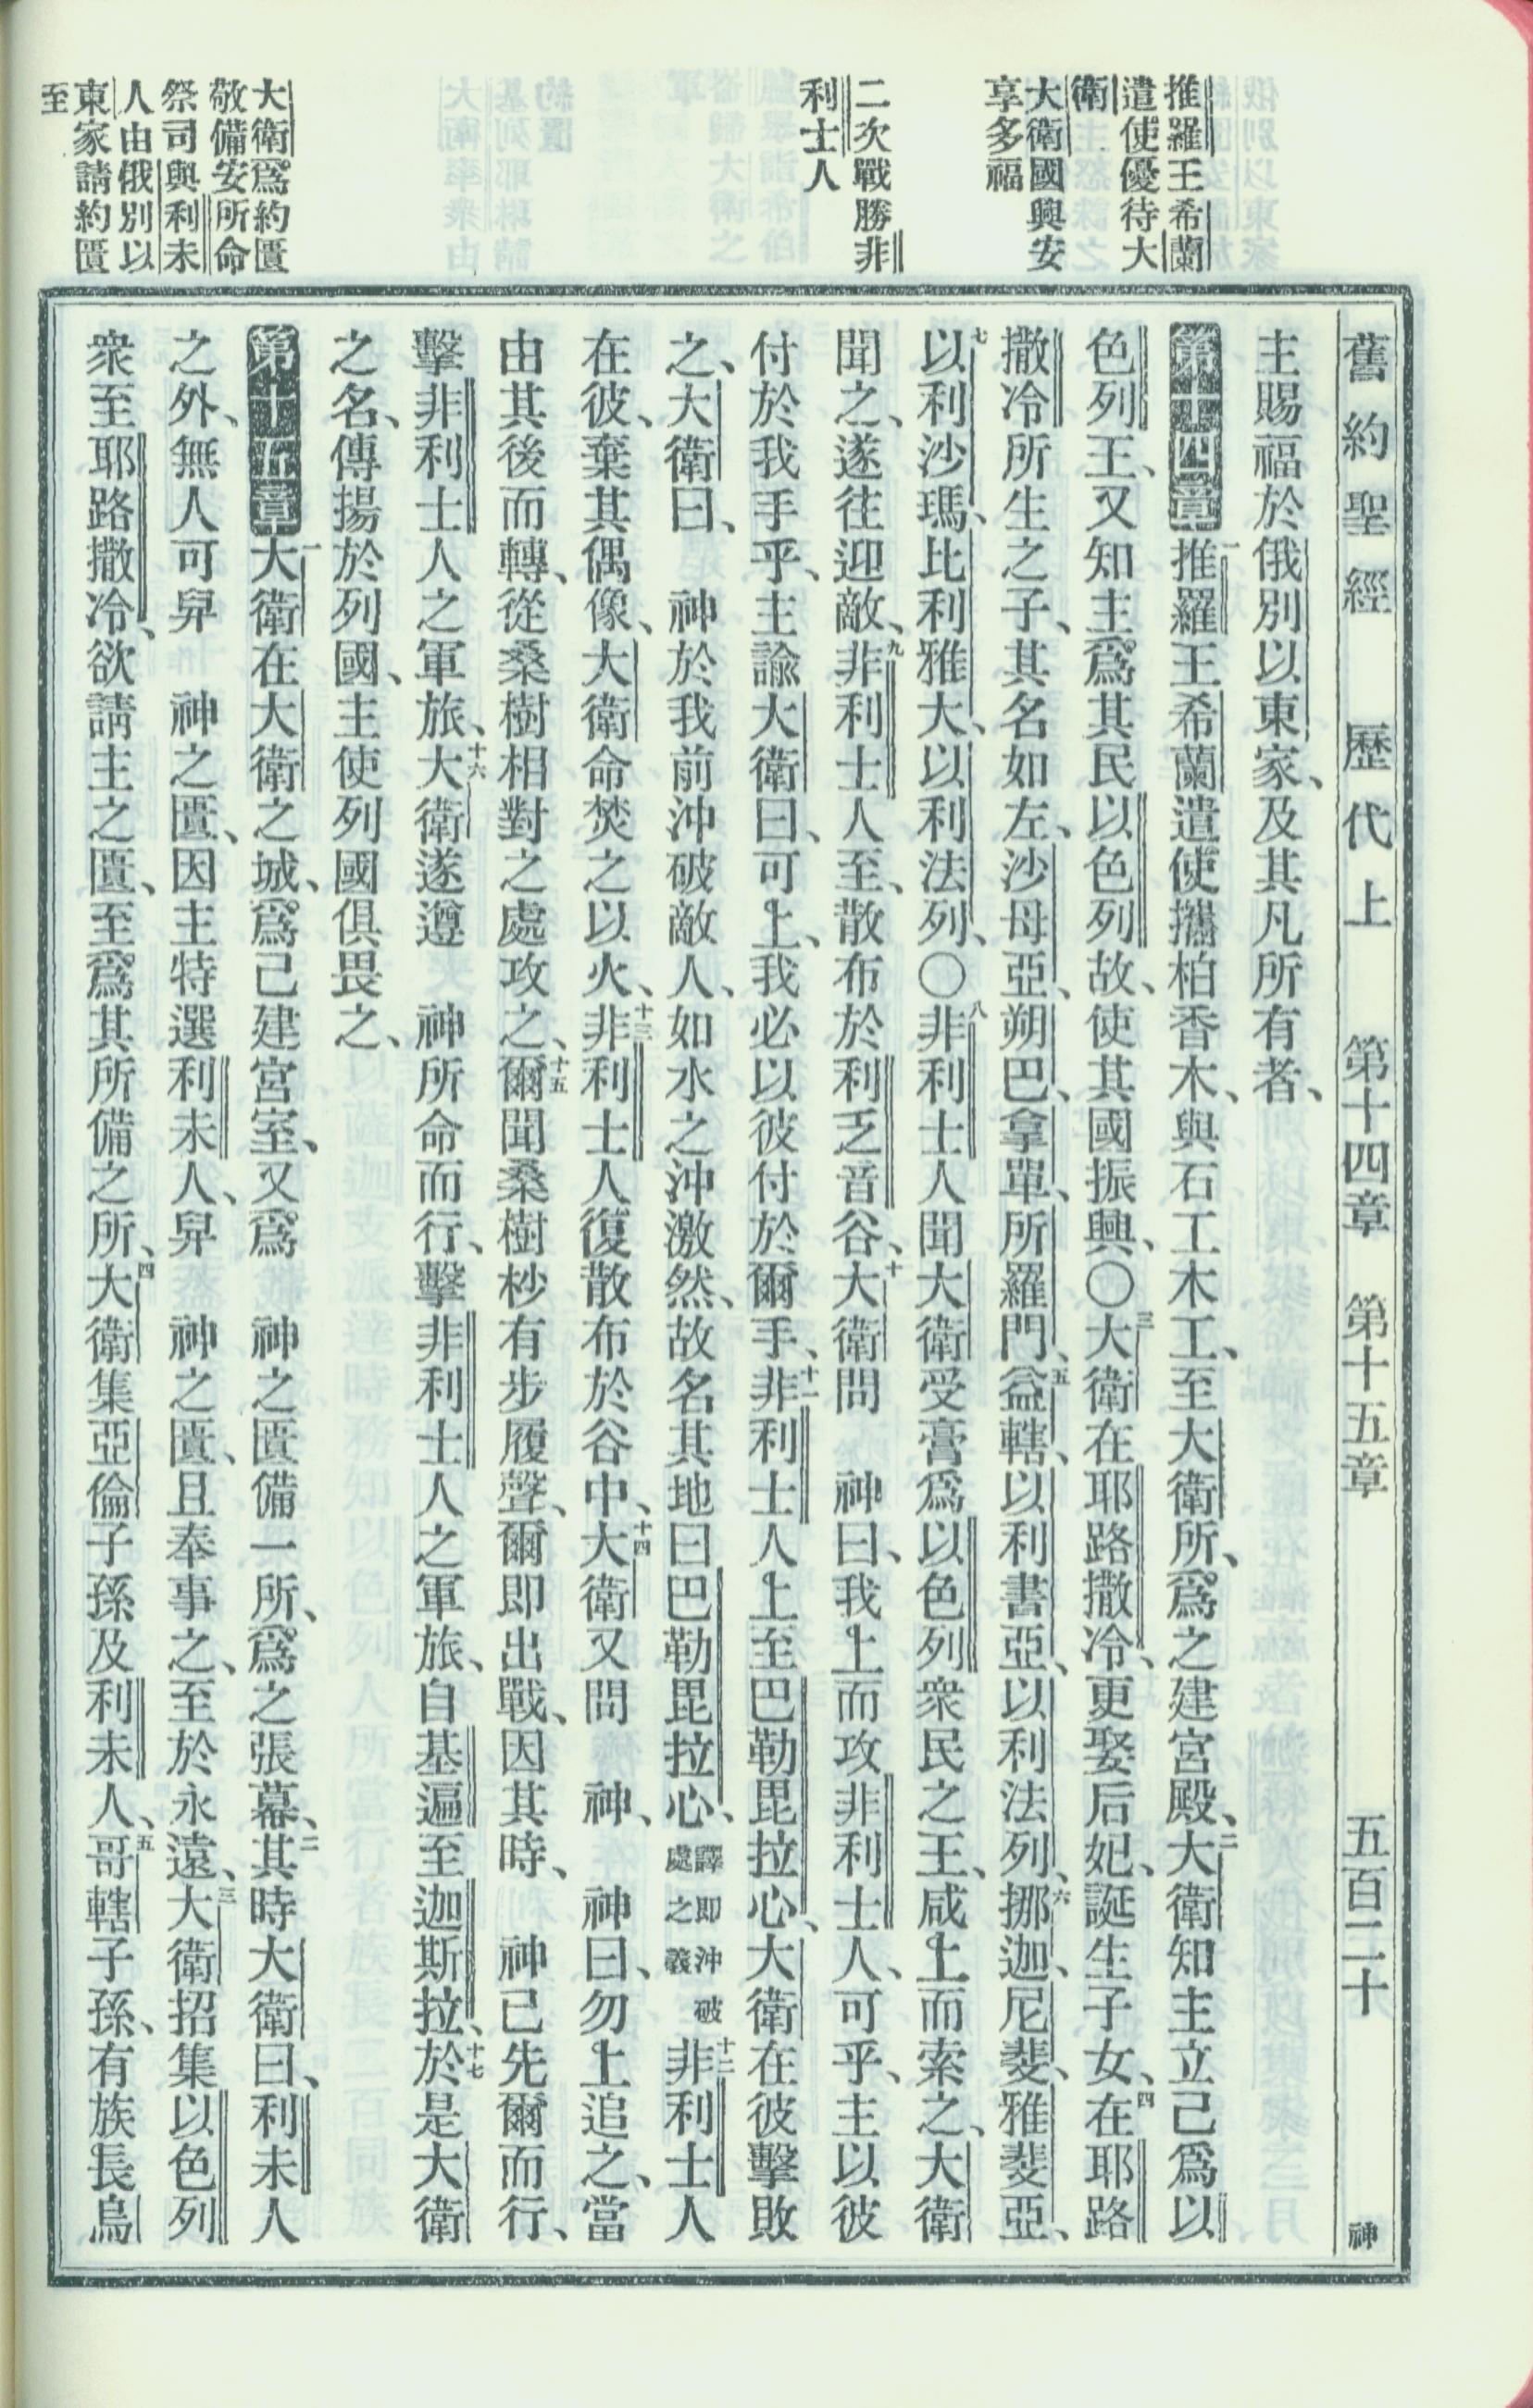 舊約聖經 歷代上 第十四章 第十五章 五百二十 神
推羅王希蘭
遣使優待大
衛
大衛國興安
享多福
二次戰勝非
利士人
大衛爲約匱
敬備安所命
祭司與利未
人由俄別以
東家請約匱
至
主賜福於俄別以東家、及其凡所有者、
第十四章一推羅王希蘭遣使攜柏香木、與石工木工、至大衛所、爲之建宮殿、二大衛知主立己爲以
色列王、又知主爲其民以色列故、使其國振興、〇三大衛在耶路撒冷、更娶后妃、誕生子女、四在耶路
撒冷所生之子、其名如左、沙母亞、朔巴、拿單、所羅門、五益轄、以利書亞、以利法列、六挪迦、尼斐、雅斐亞、
七以利沙瑪、比利雅大、以利法列、〇八非利士人聞大衛受膏爲以色列衆民之王、咸上而索之、大衛
聞之、遂往迎敵、九非利士人至、散布於利乏音谷、十大衛問 神曰、我上而攻非利士人、可乎、主以彼
付於我手乎、主諭大衛曰、可上、我必以彼付於爾手、十一非利士人上至巴勒毘拉心、大衛在彼擊敗
之、大衛曰、 神於我前沖破敵人、如水之沖激然、故名其地曰巴勒毘拉心、譯即沖破處之義十二非利士人
在彼、棄其偶像、大衛命焚之以火、十三非利士人復散布於谷中、十四大衛又問 神、 神曰、勿上追之、當
由其後而轉、從桑樹相對之處攻之、十五爾聞桑樹杪有步履聲、爾即出戰、因其時、 神已先爾而行、
擊非利士人之軍旅、十六大衛遂遵 神所命而行、擊非利士人之軍旅、自基遍至迦斯拉、十七於是大衛
之名、傳揚於列國、主使列國俱畏之、
第十五章一大衛在大衛之城、爲己建宮室、又爲 神之匱備一所、爲之張幕、二其時大衛曰、利未人
之外、無人可舁 神之匱、因主特選利未人、舁 神之匱、且奉事之、至於永遠、三大衛招集以色列
衆至耶路撒冷、欲請主之匱、至爲其所備之所、四大衛集亞倫子孫及利未人、五哥轄子孫、有族長烏